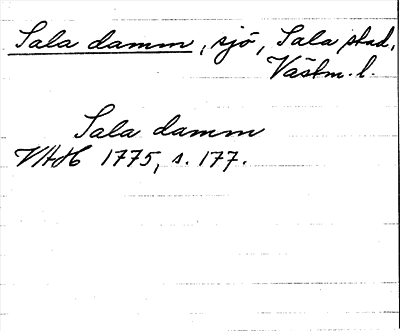 Sala damm, sjö, Sala stad,
Västm. l.
Sala damm
VAH 1775, s. 177.